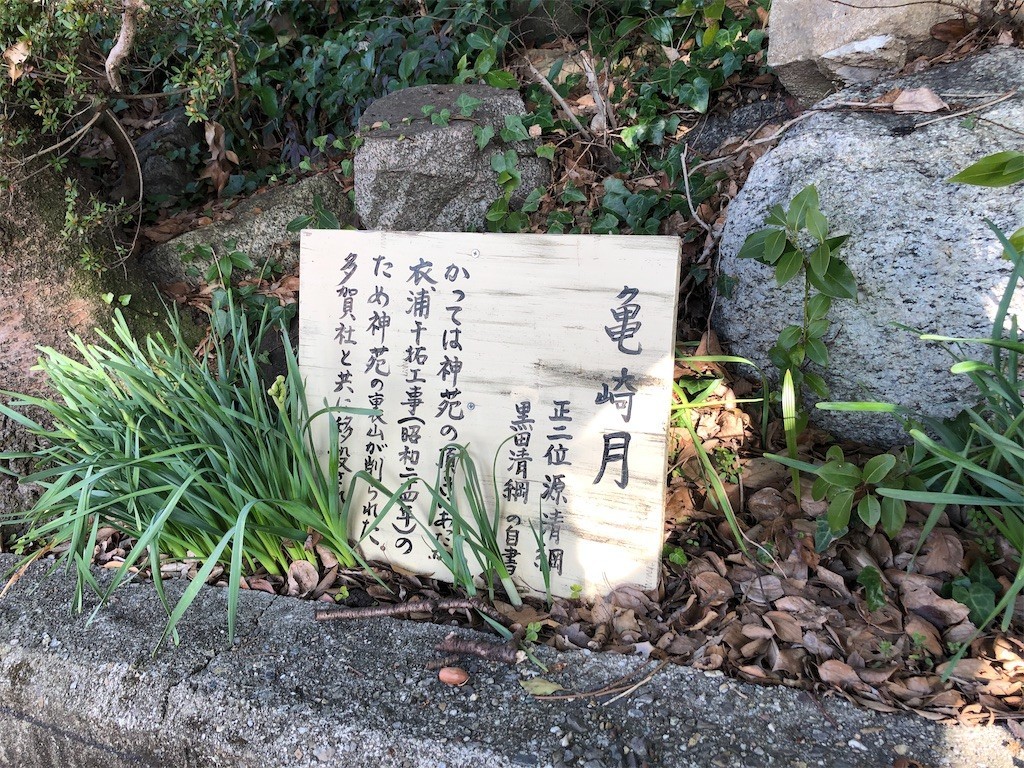 亀崎月
正二位源清綱
黒田清綱の自書
かつては神苑の頂にあった。
衣浦干拓工事(昭和二四年)の
ため神苑の東山が削られた
多賀社と共に移設され